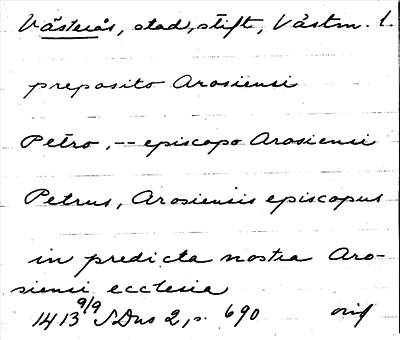 Västerås, stad, stift, Västm. l.
preposito Arosiensi
Petro, -- episcopo Arosiensi
Petrus, Arosiensis episcopus
in predicta nostra Aro-
siensi ecclesia
1413 9/9 SDns 2, s. 690 orig